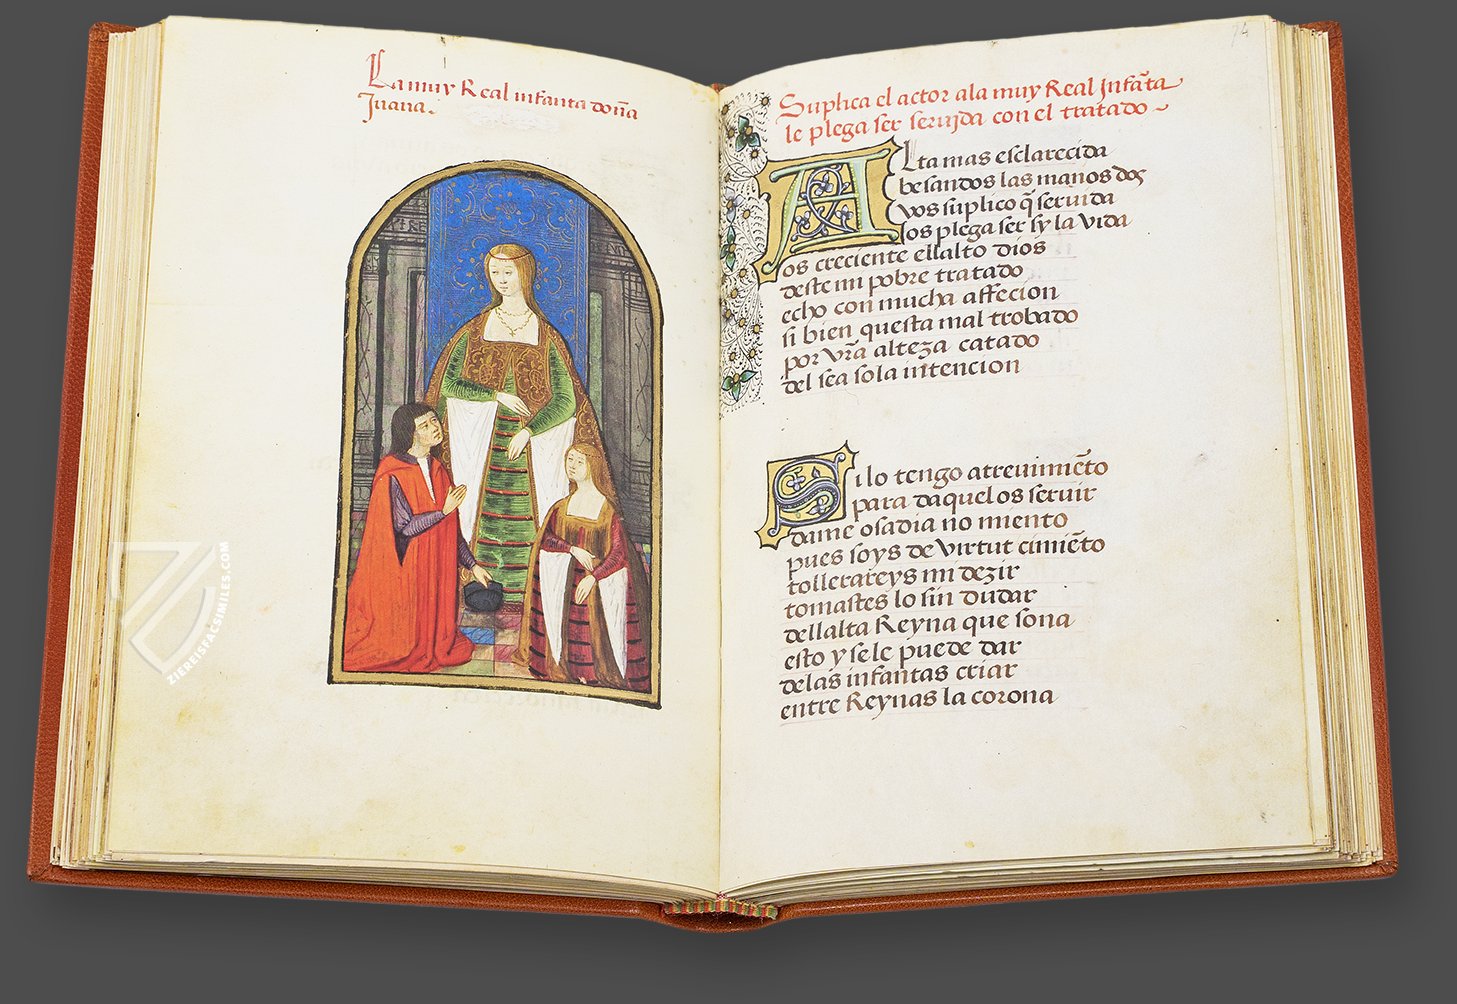 La muy Real infanta doña
Juana.
74
Suplica el actor ala muy Real Infãta
le plega ser seruida con el tratado
Alta mas esclarecida
besandos las manos dos
vos suplico q̃ seruida
os plega ser sy la vida
os creciente ellalto dios
deste mi pobre tratado
echo con mucha affecion
si bien questa mal trobado
por vr̃a alteza catado
del sea sola intencion
Si lo tengo atreuimiẽto
para daquel os seruir
dame osadia no miento
pues soys de virtut cimiẽto
tollerareys mi dezir
tomastes lo sin dudar
dellalta Reyna que sona
esto y se le puede dar
delas infantas criar
entre Reynas la corona
ZIEREISFACSIMILES.COM